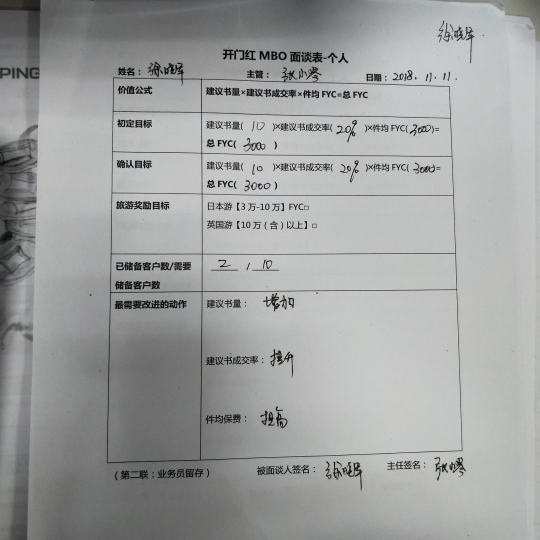 徐晓军
PING
开门红 MBO 面谈表-个人
姓名: 徐晓军 主管: 张小琴 日期: 2018. 11. 11.
价值公式 建议书量×建议书成交率×件均 FYC=总 FYC
初定目标 建议书量( 10 )×建议书成交率( 20% )×件均 FYC( 3000)=
总 FYC( 3000 )
确认目标 建议书量( 10 )×建议书成交率( 20% )×件均 FYC( 3000)=
总 FYC( 3000 )
旅游奖励目标 日本游【3 万-10 万】FYC□
英国游【10 万（含）以上】□
已储备客户数/需要 2 / 10
储备客户数
最需要改进的动作 建议书量: 增加
建议书成交率: 提升
件均保费: 提高
(第二联:业务员留存) 被面谈人签名: 徐晓军 主任签名: 张小琴